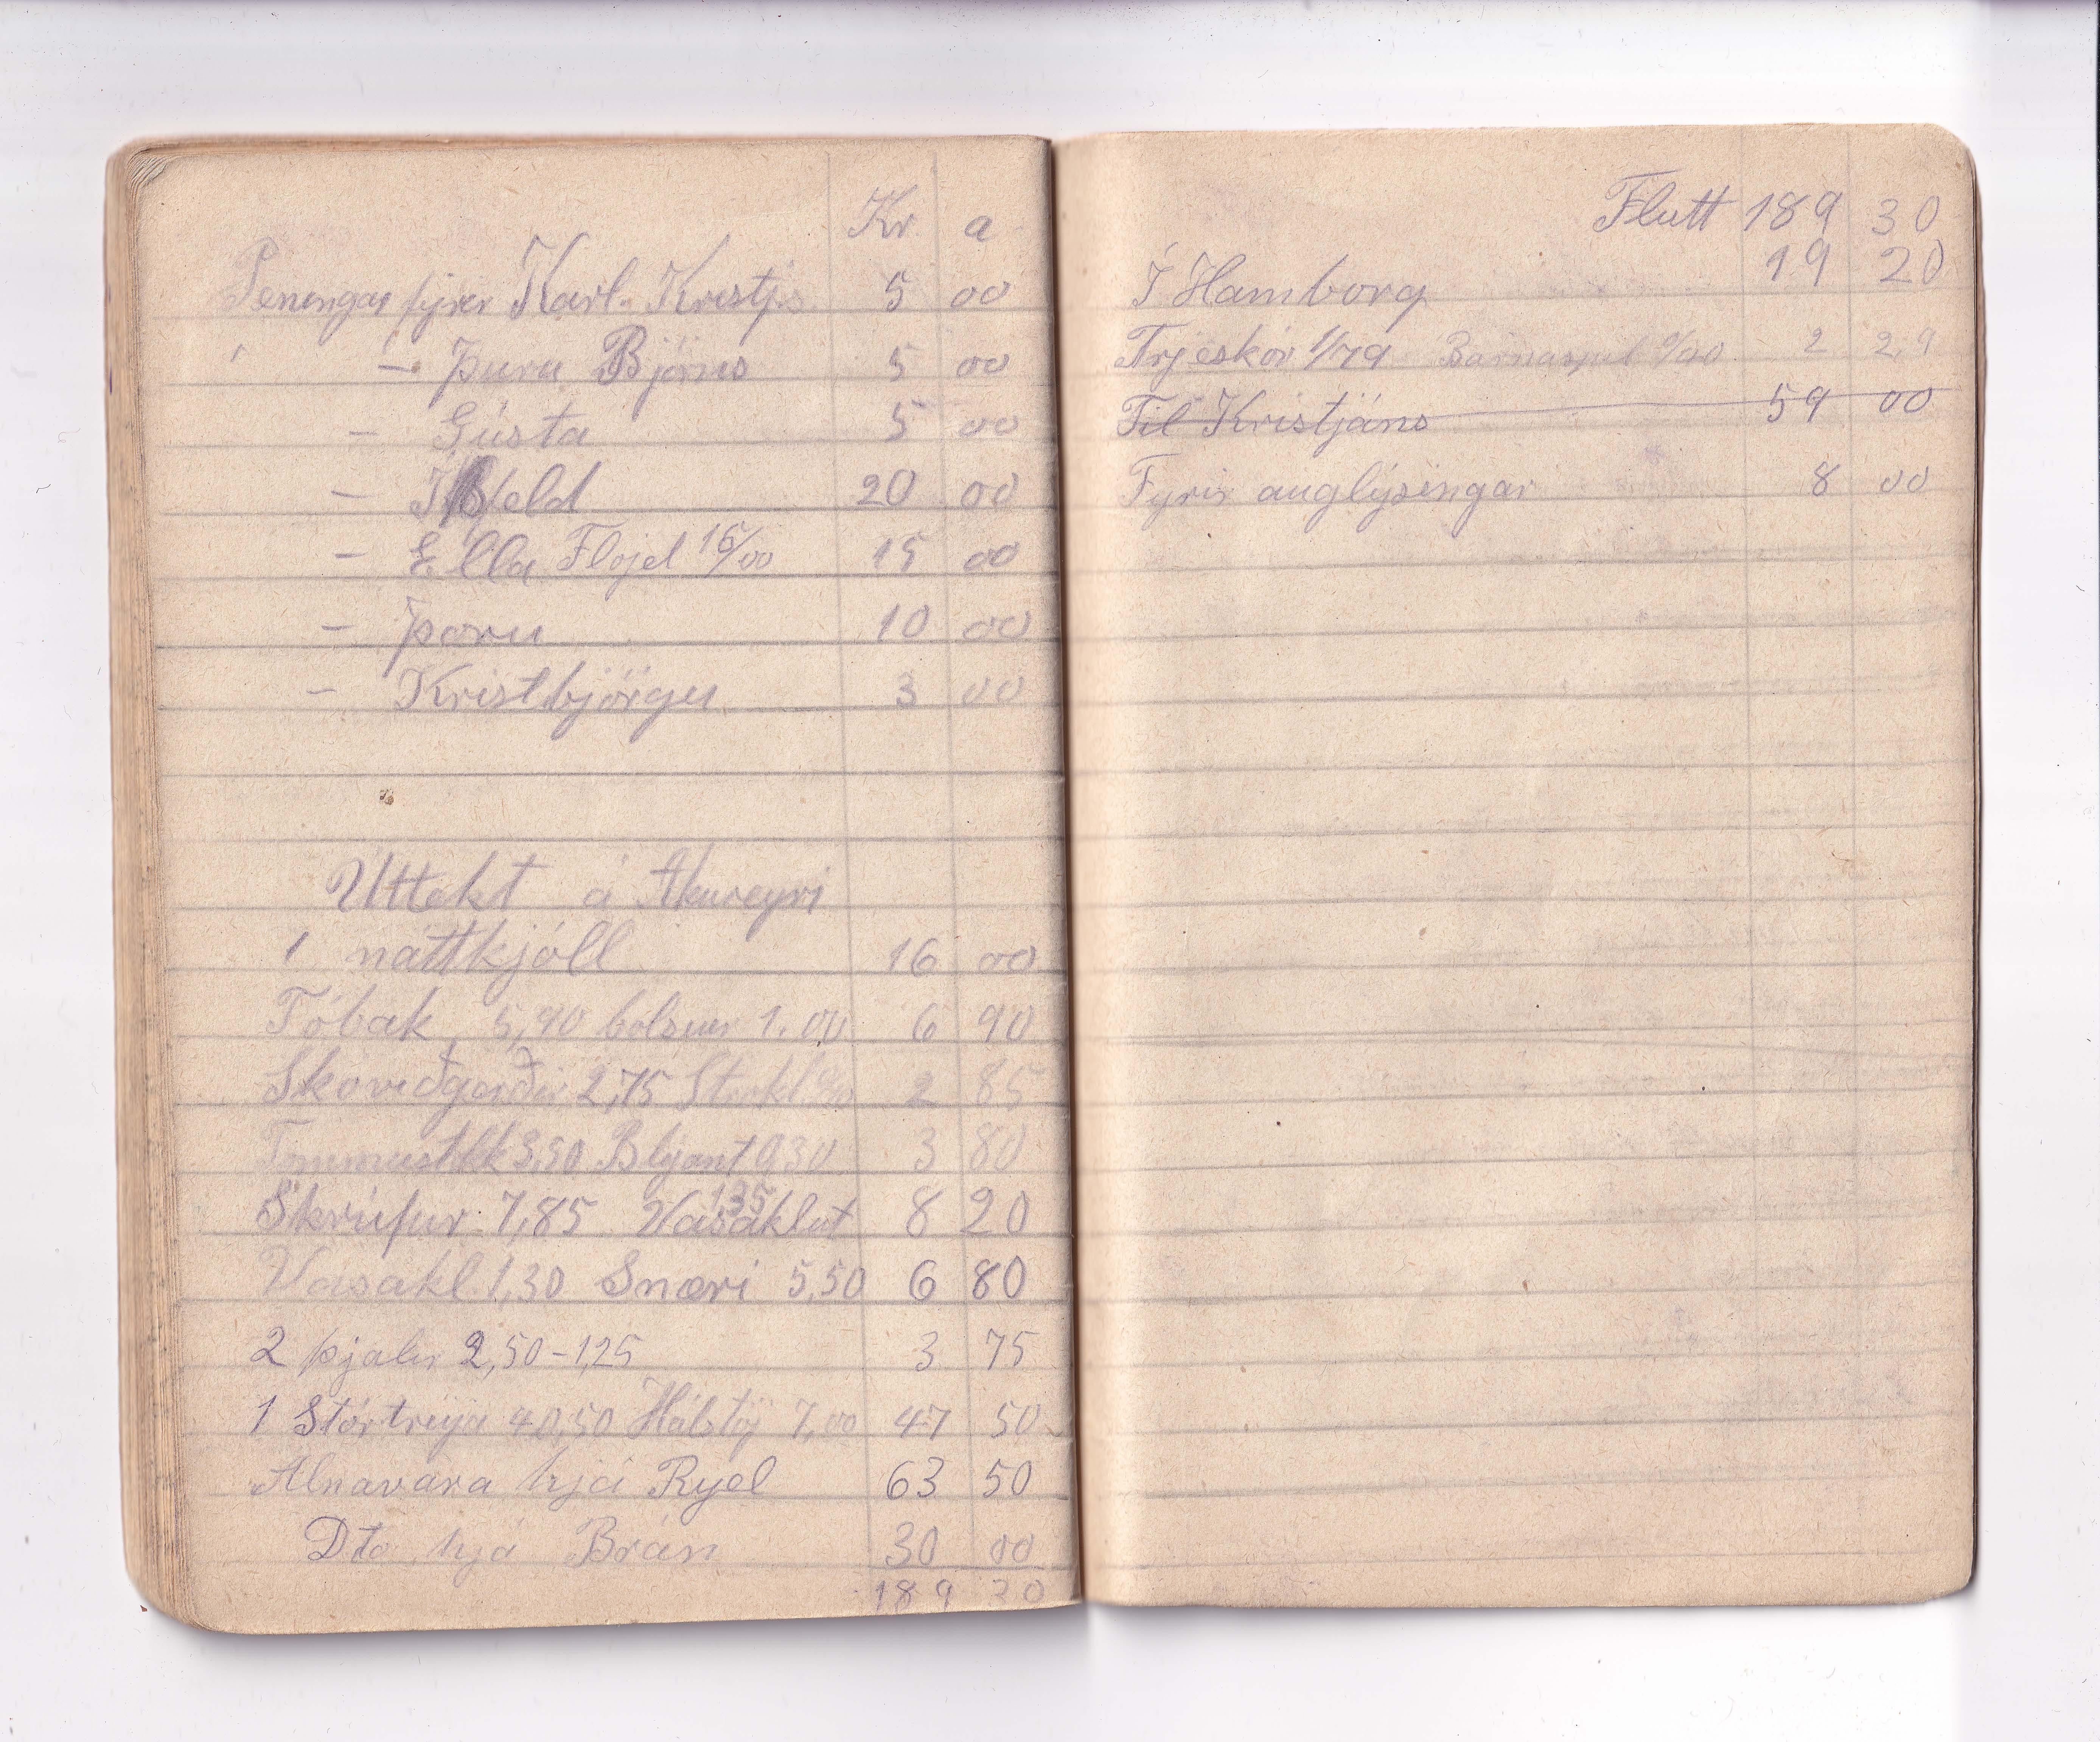 Kr a
Peningar fyrir Karl Kristjs 5 00
— Þuru Björns 5 00
— Gústa 5 00
— Ísfeld 20 00
— Ella Flojel 15/00 15 00
— Þoru 10 00
— Kristbjörgu 3 00
Úttekt á Akureyri
1 náttkjóll 16 00
Tóbak 5,90 bolsíur 1.00 6 90
Skóviðgerðir 2,75 2 85
Tommustokk 3,50 Blýant 0 30 3 80
Skrúfur 7,85 Vasaklut 135 8 20
Vasakl. 1,30 Snæri 5,50 6 80
2 þjalir 2,50-1,25 3 75
1 Stórtreyja 40,50 Hálstöj 7,00 47 50
Alnavara hjá Ryel 63 50
Dto hjá Brán 30 00
189 30
Flutt 189 30
Í Hamborg 19 20
Trjeskór 1/79 Barnaspil 2 29
Til Kristjáns 59 00
Fyrir auglýsingar 8 00